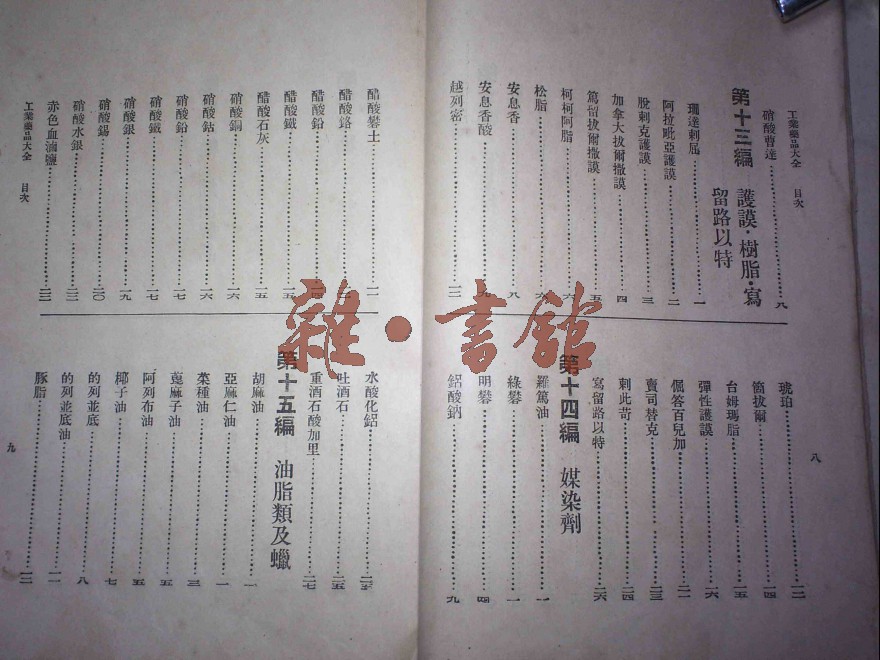 工業藥品大全 目次
硝酸曹達……八
第十三編 護謨·樹脂·寫
留路以特
珊達剌屈……一
阿拉毗亞護謨……二
脫剌克護謨……三
加拿大拔爾撒謨……四
篤留拔爾撒謨……五
柯柯阿脂……六
松脂……六
安息香……八
安息香酸……九
越列密……一二
琥珀……一二
箇拔爾……一四
台姆瑪脂……一五
彈性護謨……一六
倔答百兒加……二一
賣司替克……二三
剌此苛……二四
寫留路以特……二六
第十四編 媒染劑
羅篤油……一
綠礬……一
明礬……四
鋁酸鈉……九
八
醋酸礬土……一一
醋酸鉻……
醋酸鉛……
醋酸鐵……一五
醋酸石灰……一五
硝酸銅……一六
硝酸鈷……一六
硝酸鉛……一七
硝酸鐵……一七
硝酸銀……一九
硝酸錫……二〇
硝酸水銀……二二
赤色血滷鹽……二二
水酸化鋁……二五
吐酒石……二五
重酒石酸加里……二七
第十五編 油脂類及蠟
胡麻油……一
亞麻仁油……一
菜種油……三
蓖麻子油……五
阿列布油……五
椰子油……七
的列並底……八
的列並底油……一一
豚脂……一二
工業藥品大全 目次
九
雜·書館